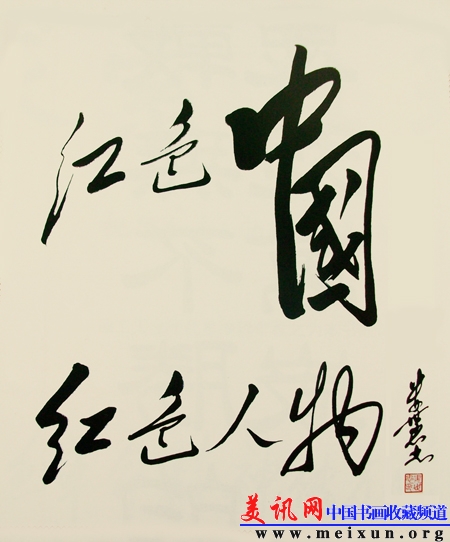 红色中國
红色人物
美讯网中国书画收藏频道
www.meixun.org